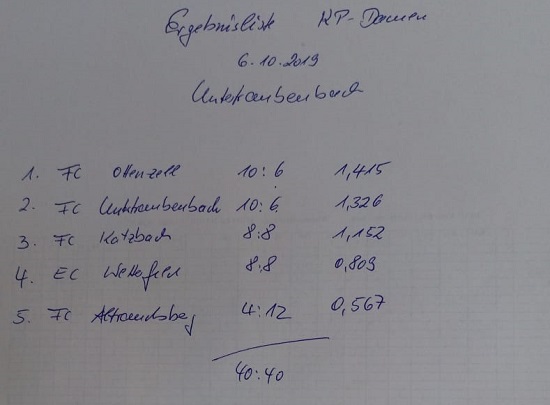 Ergebnisliste KP-Damen
6.10.2019
Untertraubenbach
1. FC Ottenzell 10:6 1,415
2. FC Untertraubenbach 10:6 1,326
3. FC Katzbach 8:8 1,152
4. EC 8:8 0,809
5. FC Altrandsberg 4:12 0,567
40:40